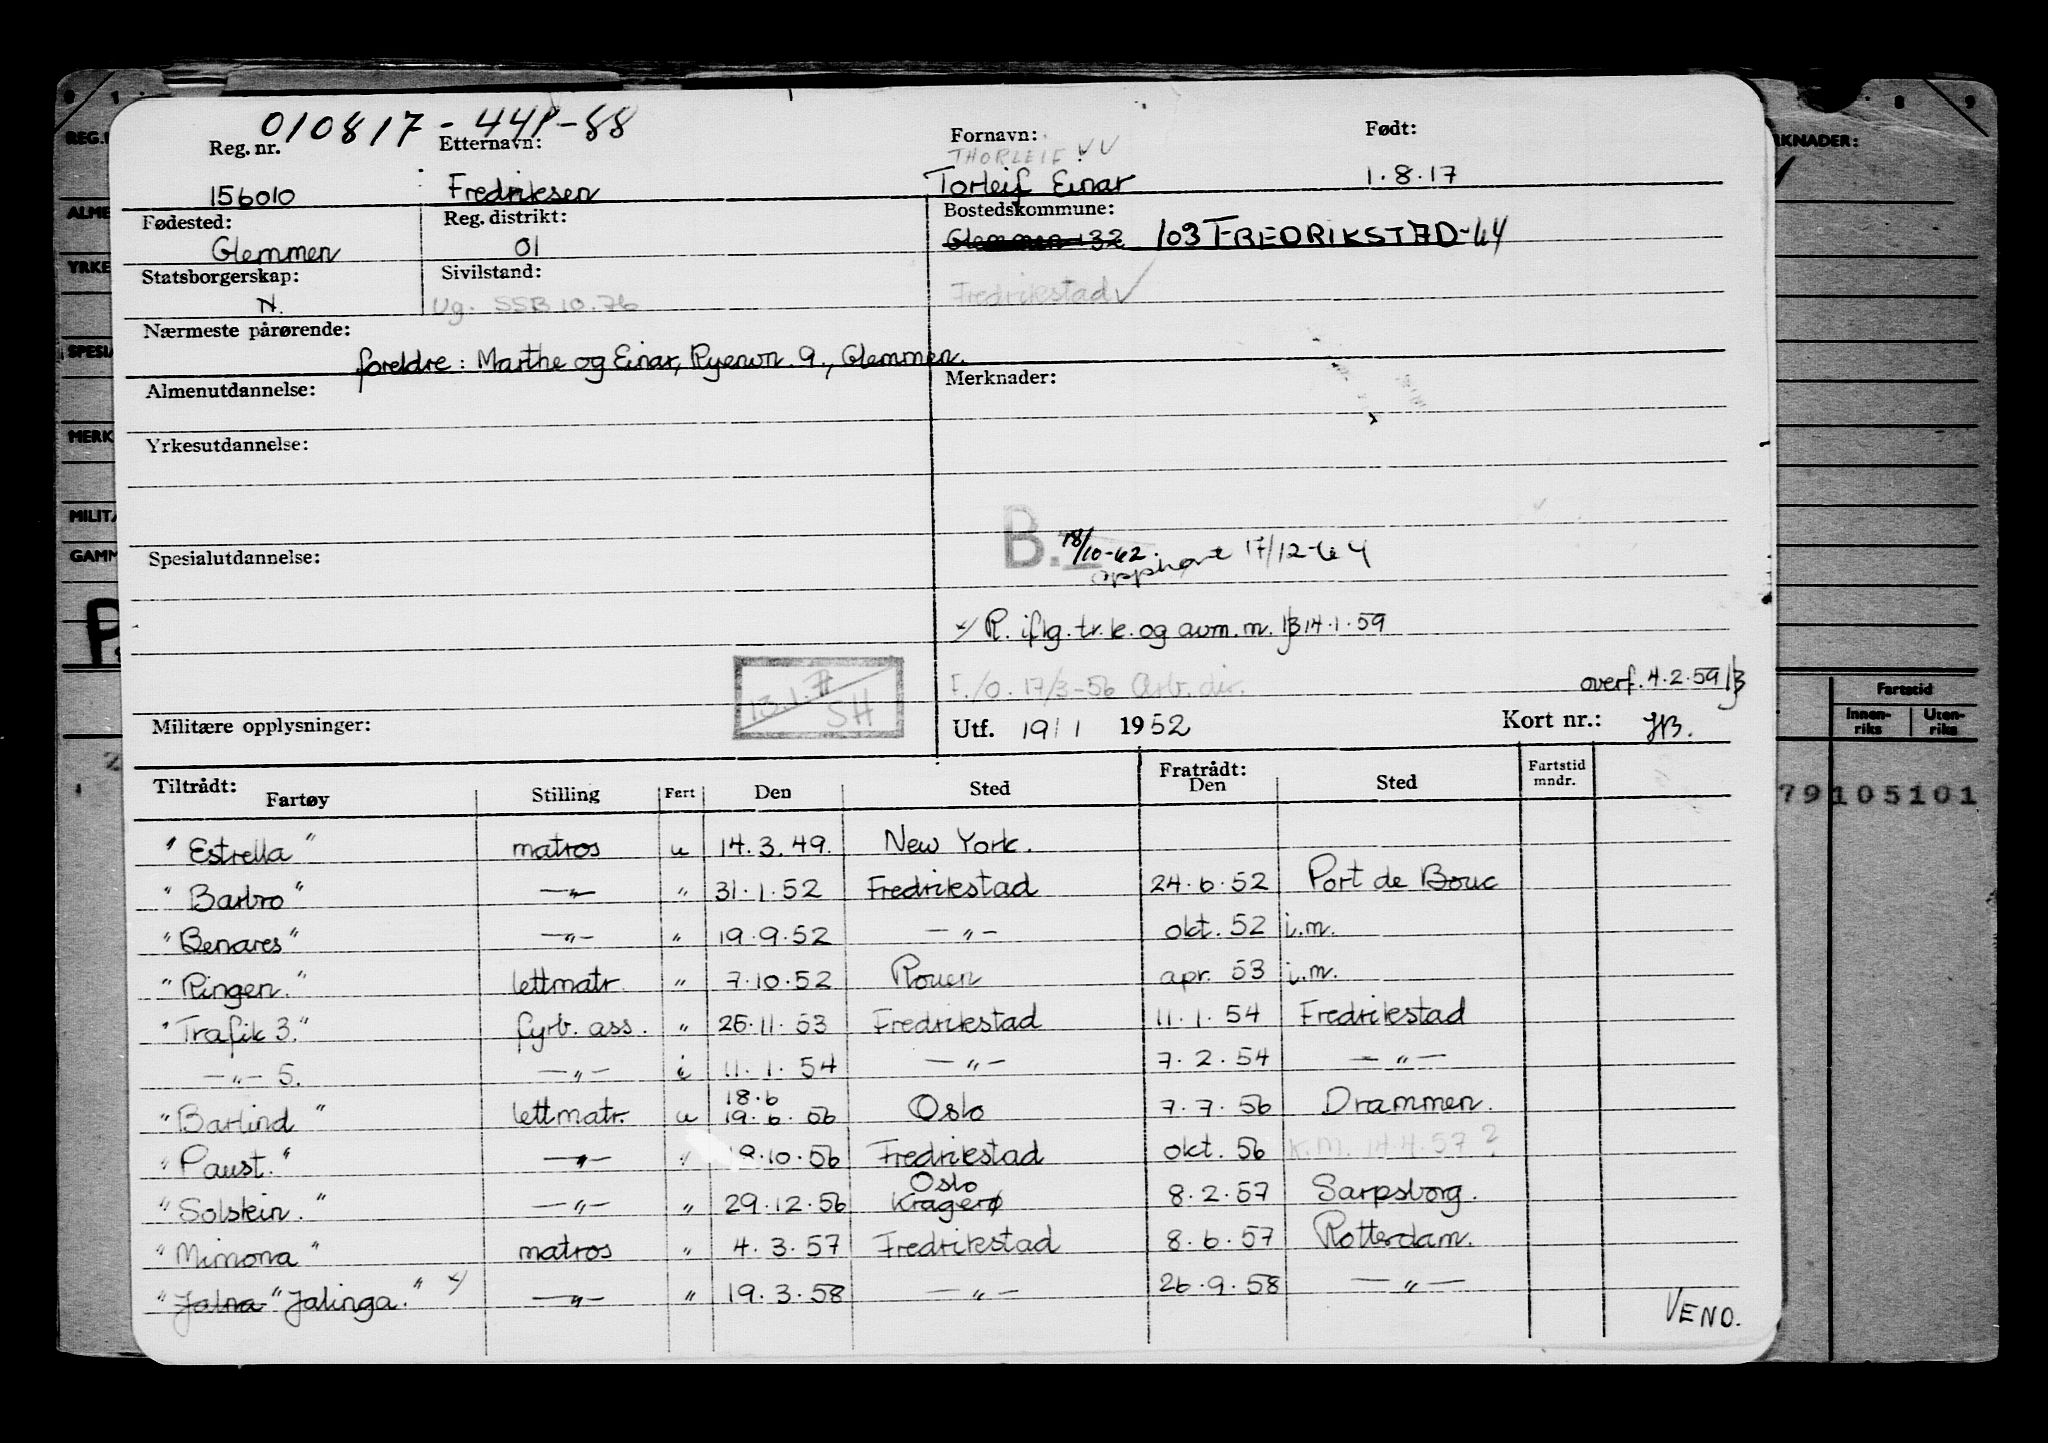 010817 - 44P-88
Reg. nr. Etternavn: Fornavn: Født:
THORLEIF VV
156010 Fredriksen Torleif Einar 1.8.17
Fødested: Reg. distrikt: Bostedskommune:
Glemmen 01 Glemmen 32 103 FREDRIKSTAD-64
Statsborgerskap: Sivilstand:
N. Ug. SSB 10.76 Fredrikstad ✓
Nærmeste pårørende:
foreldre: Marthe og Einar, Ryenvn. 9., Glemmen.
Almenutdannelse: Merknader:
Yrkesutdannelse:
B. 18/10-62. opphørt 17/12-64
Spesialutdannelse:
x/ R. iflg. tr.k. og avm.m. 14.1.59
I./O. 17/3-56 Arb. dir.
overf. 4.2.59
13.1.71
SH
Militære opplysninger: Utf. 19/1 1952 Kort nr.: HB.
Tiltrådt: Fratrådt:
Fartøy Stilling Fart Den Sted Den Sted Fartstid mndr.
"Estrella" matros u 14.3.49. New York.
"Barbro" —„— „ 31.1.52 Fredrikstad 24.6.52 Port de Bouc
"Benares" —„— „ 19.9.52 —„— okt. 52 i.m.
"Ringen." lettmatr. „ 7.10.52 Rouen apr. 53 i.m.
"Trafik 3." fyrb. ass. „ 25.11.53 Fredrikstad 11.1.54 Fredrikstad
—„— 5. —„— i 11.1.54 —„— 7.2.54 —„—
18.6
"Barlind" lettmatr. u 19.6.56 Oslo 7.7.56 Drammen.
"Paust." —„— „ 18.10.56 Fredrikstad okt. 56 K.M. 14.4.57?
Oslo
"Solstein." —„— „ 29.12.56 Kragerø 8.2.57 Sarpsborg.
"Mimona" matros „ 4.3.57 Fredrikstad 8.6.57 Rotterdam.
"Jalna" "Jalinga." x/ —„— „ 19.3.58 —„— 26.9.58 —„—
VEND.
REG.
ALME
YRKE
SPESIA
MERK
MILITÆ
GAMM
RKNADER:
8 9
Fartstid
Innen-riks Uten-riks
79105101